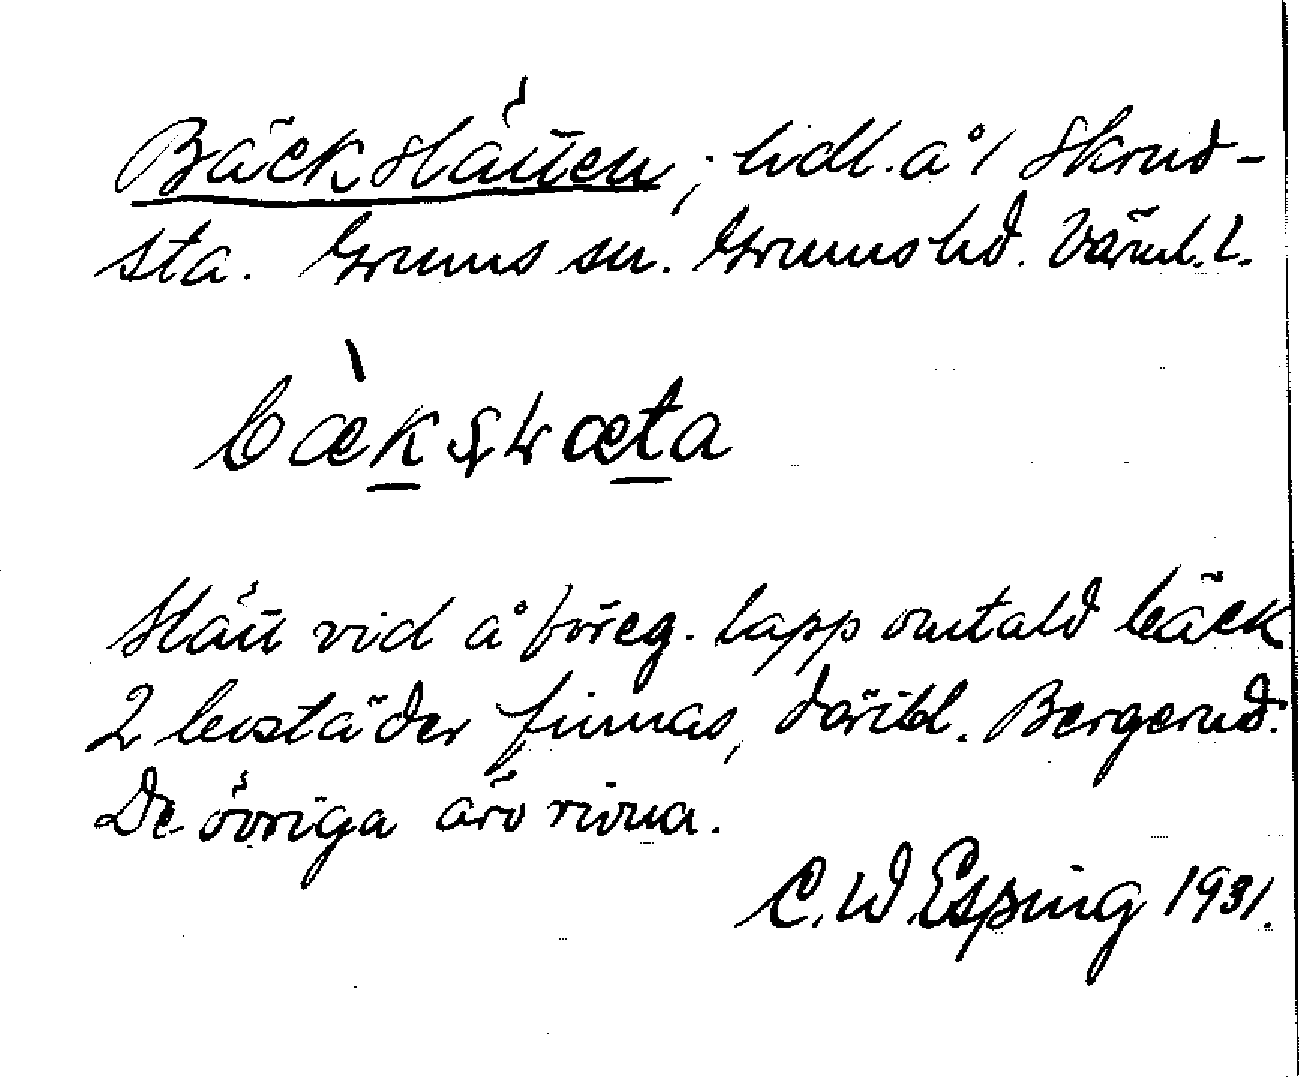 Bäckslätten, : lidl. å 1 Skrud-
sta. Grums sn. Grums hd. Värml. l.
bæksɫæta
Slätt vid å föreg. lapp omtald bäck
2 bostäder finnas, däribl. Bergerud.
De övriga äro rivna.
C. W. Esping 1931.